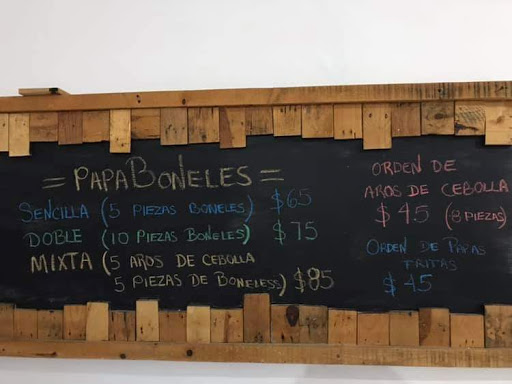 = PAPA BOÑELES =
SENCILLA (5 PIEZAS BONELES) $65
DOBLE (10 PIEZAS BONELES) $75
MIXTA (5 AROS DE CEBOLLA
5 PIEZAS DE BONELESS) $85
ORDEN DE
AROS DE CEBOLLA
$45 (8 PIEZAS)
ORDEN DE PAPAS
FRITAS
$45